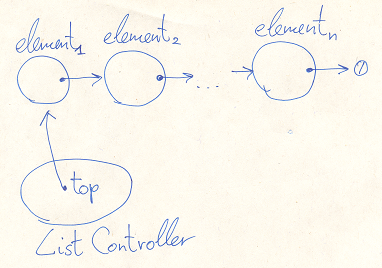 element₁ element₂ elementₙ
...
top
List Controller